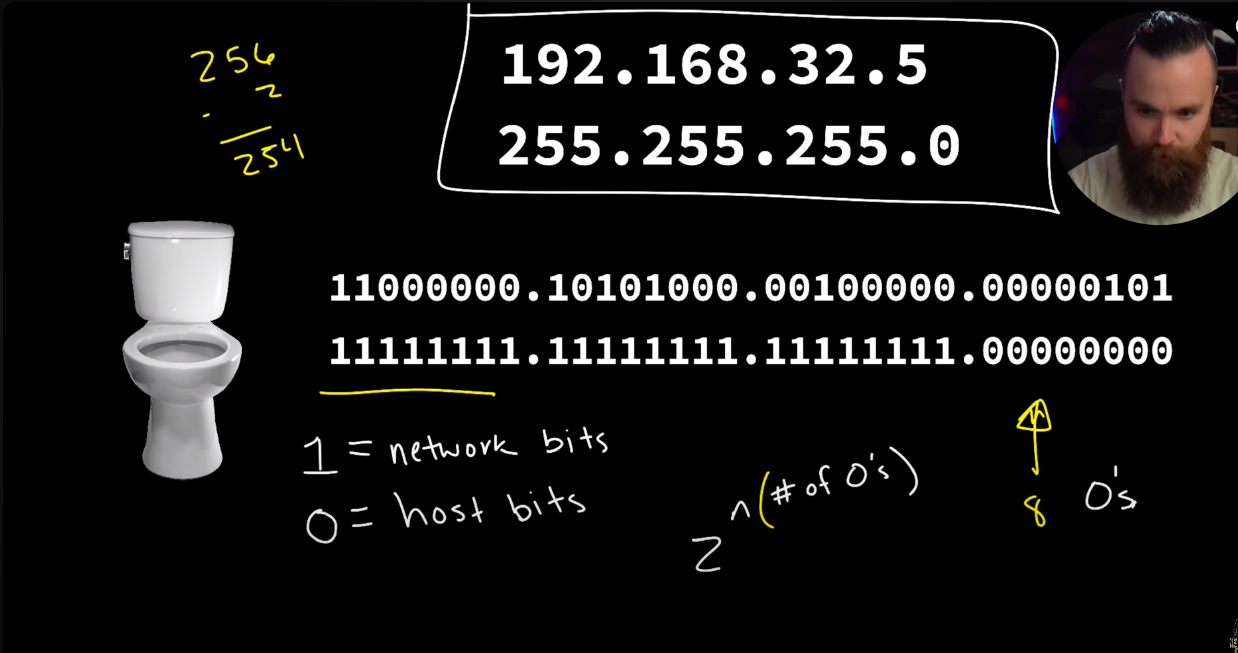 256
- 2
254
192.168.32.5
255.255.255.0
11000000.10101000.00100000.00000101
11111111.11111111.11111111.00000000
1 = network bits
0 = host bits
2^n(# of 0's)
8 0's